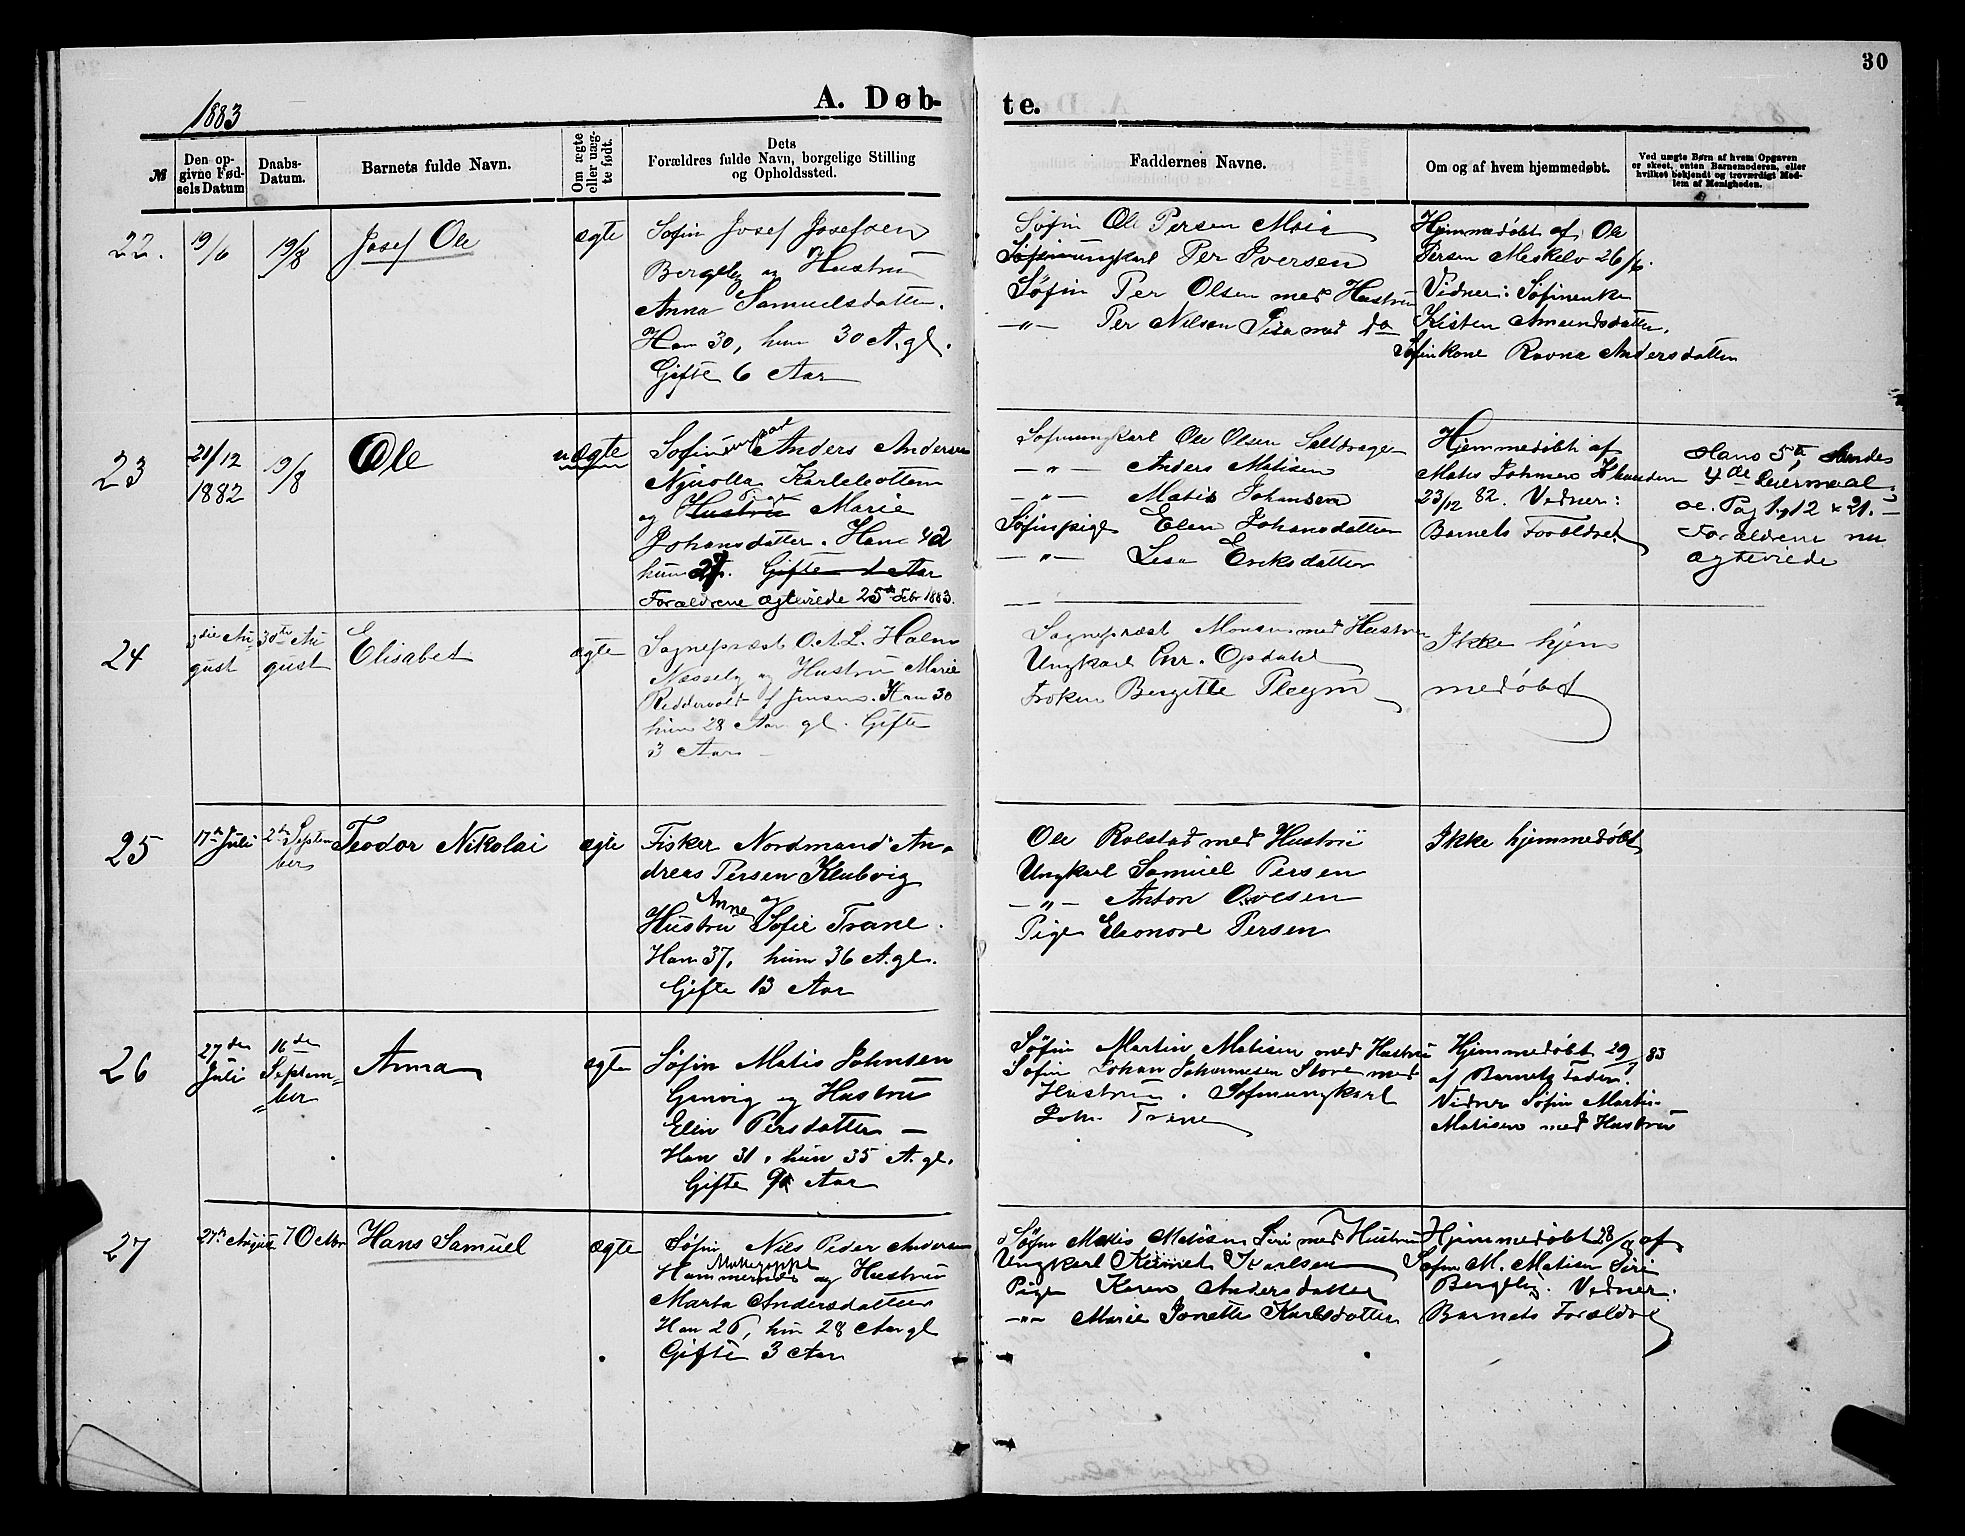 30
1883
A. Døb-
te.
№
Den op-
givne Fød-
sels Datum
Daabs-
Datum.
Barnets fulde Navn.
Om ægte
eller uæg-
te født.
Dets
Forældres fulde Navn, borgelige Stilling
og Opholdssted.
Faddernes Navne.
Om og af hvem hjemmedøbt.
Ved uægte Børn af hvem Opgaven
er skeet, enten Barnemoderen, eller
hvilket bekjendt og troværdigt Med-
lem af Menigheden.
22.
19/6
19/8
Josef Ole
ægte
Søfin Josef Josefsen
Bergeby og Hustru
Anna Samuelsdatter.
Han 30, hun 30 A. gl.
Gifte 6 Aar
Søfin Ole Persen
Søfinungkarl Per Iversen
Søfin Per Olsen med Hustru
-"- Per Nilsen med do
Hjemmedøbt af Ole
Persen Meskelv 26/6.
Vidner: Søfinenke
Kisten Amundsdatter.
Søfinkone Ravna Andersdatter
23
21/12
1882
19/8
Ole
uægte
Søfinungkarl Anders Andersen
Njuolla Karlebotten
og Hustru Pige Marie
Johansdatter. Han 42
hun 27. Gifte 1 Aar
Forældrene ægteviede 25de Febr 1883.
Søfinungkarl Ole Olsen
-"- Anders Matisen
-"- Matis Johansen
Søfinpige Elen Johansdatter
-"- Lisa Eriksdatter
Hjemmedøbt af
Matis Johnsen
23/12 82. Vidner:
Barnets Forældre
Hans 5te, hendes
4de Leiermaal
Forældrene nu
ægteviede
24
3die Au-
gust
30te Au-
gust
Elisabet
ægte
Sognepræst O. A. L. Holm
Næsseby og Hustru Marie
Riddervold f. Jensen. Han 30
hun 28 Aar gl. Gifte
3 Aar
Sognepræst Monsen med Hustru
Ungkarl Chr. Opdahl
Frøken Bergitte Pleym
Ikke hjem
medøbt
25
17de Juli
2den Septem
ber
Teodor Nikolai
ægte
Fisker Nordmand An-
dreas Persen Klubvig
og
Hustru Anne Sofie Trane.
Han 37, hun 36 A. gl.
Gifte 13 Aar
Ole Rolstad med Hustru
Ungkarl Samuel Persen
-"- Anton Ovesen
Pige Eleonore Persen
Ikke hjemmedøbt
26
27de
Juli
16de
Septem-
ber
Anna
ægte
Søfin Matis Johnsen
og Hustru
Elen Persdatter
Han 31, hun 35 A. gl.
Gifte 9 Aar
Søfin Martin Matisen med Hustru
Søfin Johan Johannesen Store med
Hustru. Søfinungkarl
Joh. Trane
Hjemmedøbt 29/7 83
af Barnets Fader.
Vidner Søfin Martin
Matisen med Hustru
27
27de August
7 Octbr
Hans Samuel
ægte
Søfin Nils Peder Andersen
Hammernes og Hustru
Marta Andersdatter
Han 26, hun 28 Aar gl
Gifte 3 Aar
Søfin Matis Matisen Siri med Hustru
Ungkarl Karlsen
Pige Karen Andersdatter
-"- Marie Janette Karlsdatter
Hjemmedøbt 28/8 af
Søfin M. Matisen Siri
Bergeby. Vidner:
Barnets Forældre